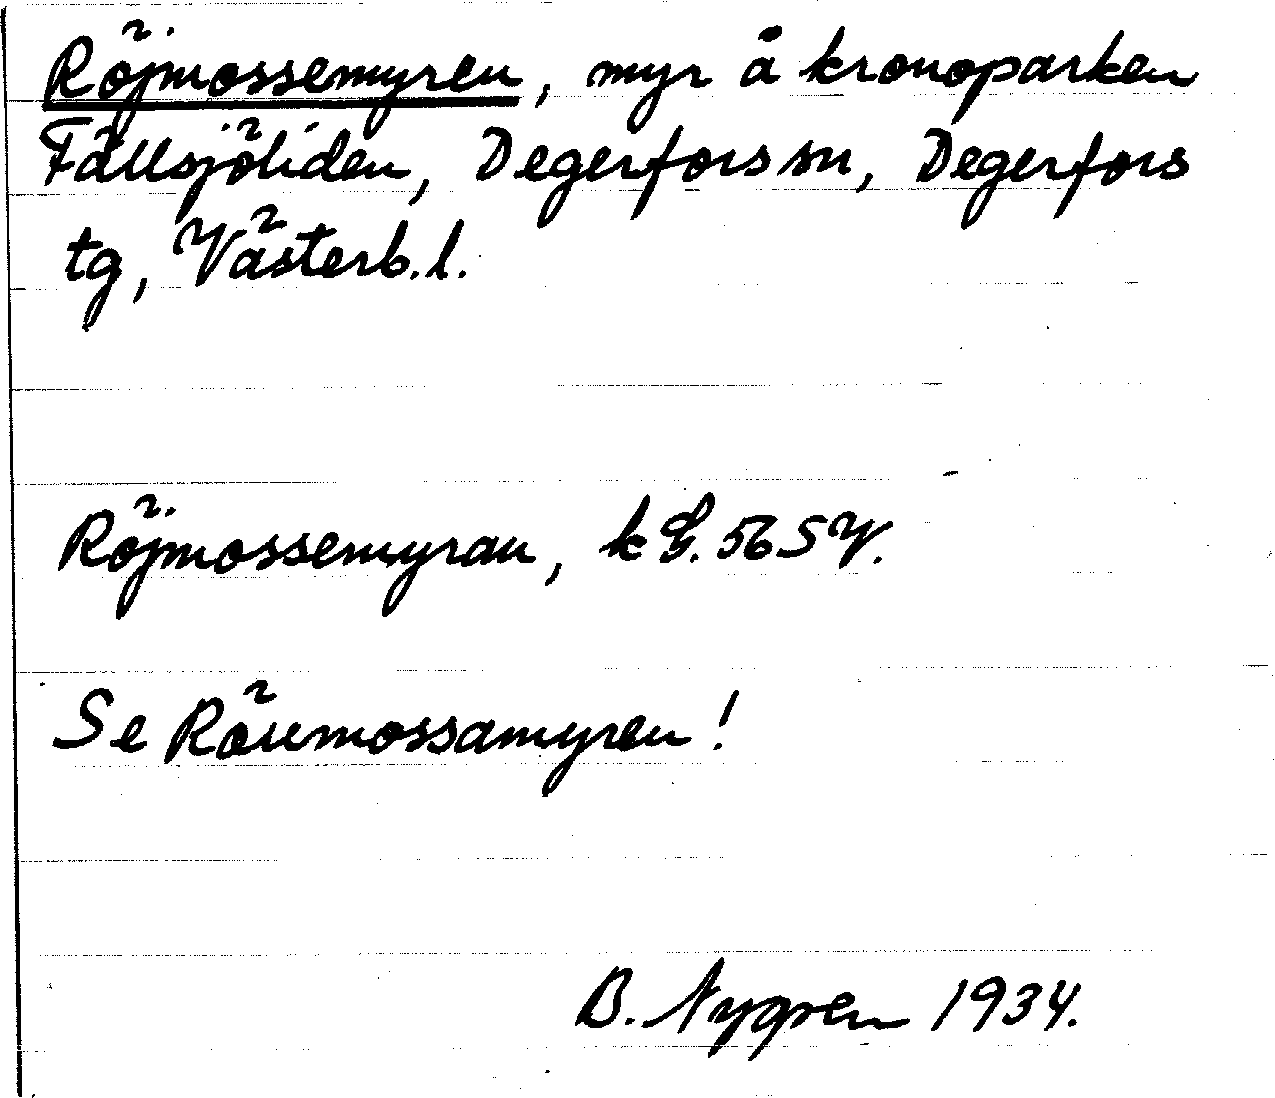 Röjmossemyren, myr å kronoparken
Fällsjöliden, Degerfors sn, Degerfors
tg, Västerb. l.
Röjmossemyran, k G. 56 SV.
Se Rösemossamyren!
B. Nygren 1934.